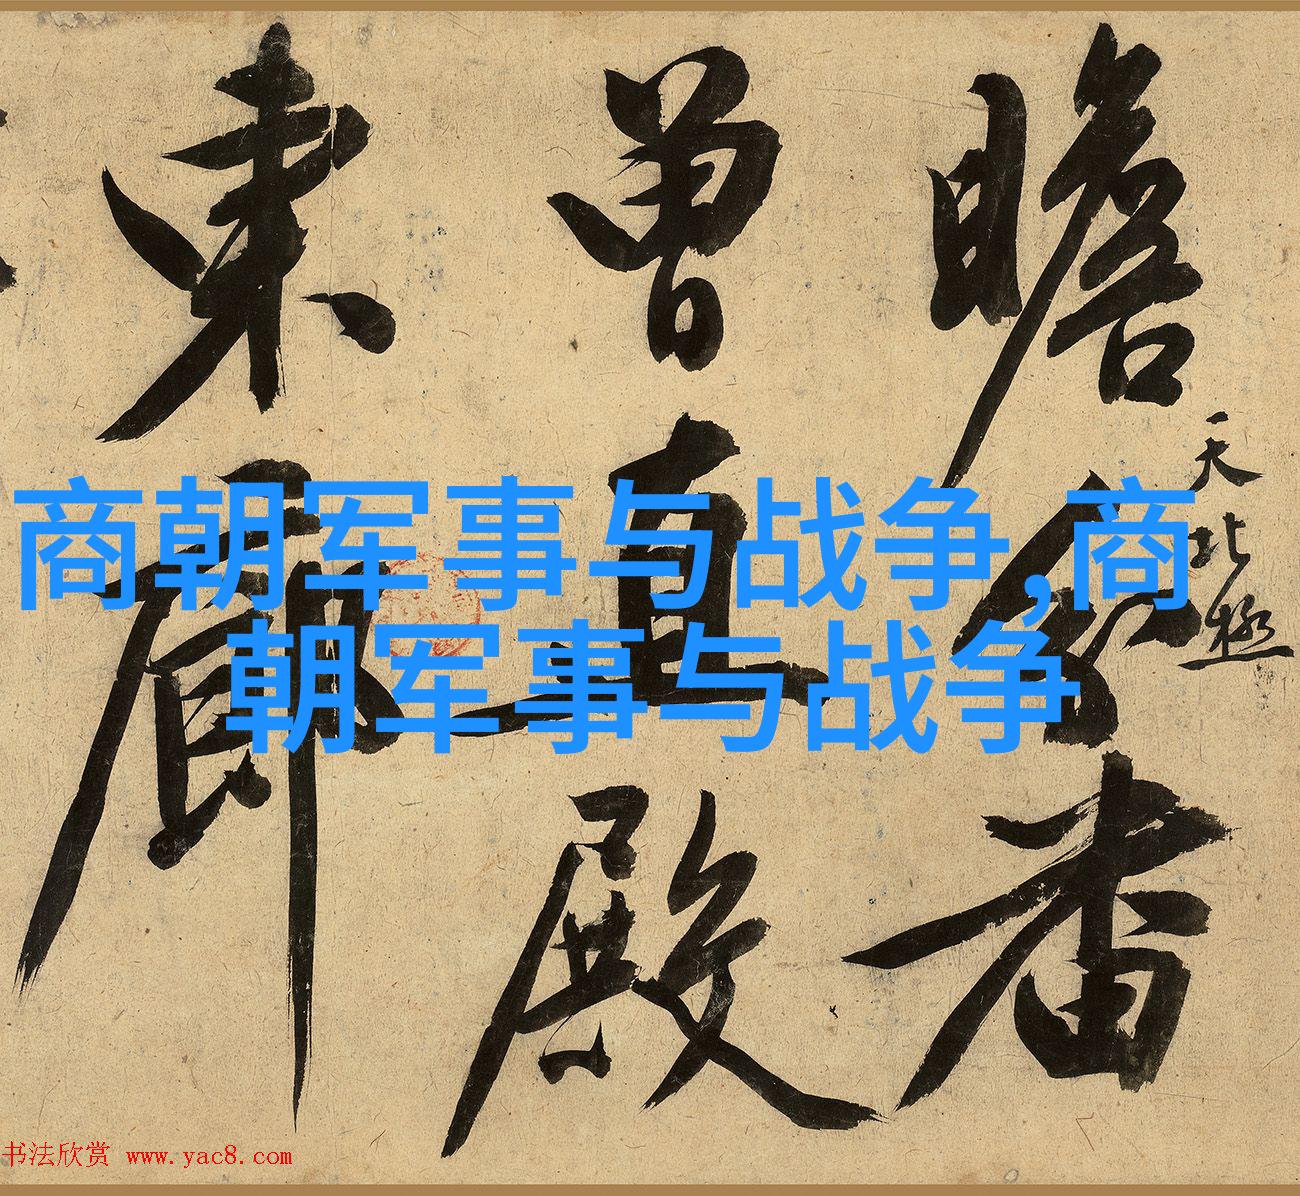 瞻 者
天北極
曾直殿
東廊
商朝军事与战争,商
朝军事与战争
书法欣赏 www.yac8.com